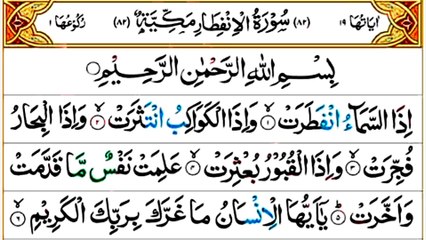 اٰيَاتُهَا ١٩ (٨٢) سُوْرَةُ الْاِنْفِطَارِ مَكِّيَّةٌ (٨٢) رُكُوْعُهَا ١
بِسْمِ اللّٰهِ الرَّحْمٰنِ الرَّحِيْمِ
اِذَا السَّمَآءُ انْفَطَرَتْ ۝١ وَاِذَا الْكَوَاكِبُ انْتَثَرَتْ ۝٢ وَاِذَا الْبِحَارُ
فُجِّرَتْ ۝٣ وَاِذَا الْقُبُوْرُ بُعْثِرَتْ ۝٤ عَلِمَتْ نَفْسٌ مَّا قَدَّمَتْ
وَاَخَّرَتْ ۝٥ يٰٓاَيُّهَا الْاِنْسَانُ مَا غَرَّكَ بِرَبِّكَ الْكَرِيْمِ ۝٦